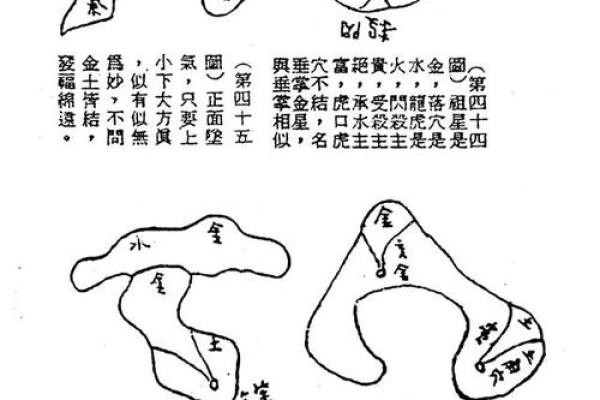 （第四十四
圖）祖星是
金，落穴是
水，龍虎是
火，閃殺主
貴，受殺主
絕，承水主
富，虎口虎
穴不結，名
垂掌金星，
與垂掌相似
（第四十五
圖）正面墜
氣，只要上
小下大方眞
，似有似無
爲妙，不問
金土皆結，
發福綿遠。
金
金
土
土
金
水
金
土